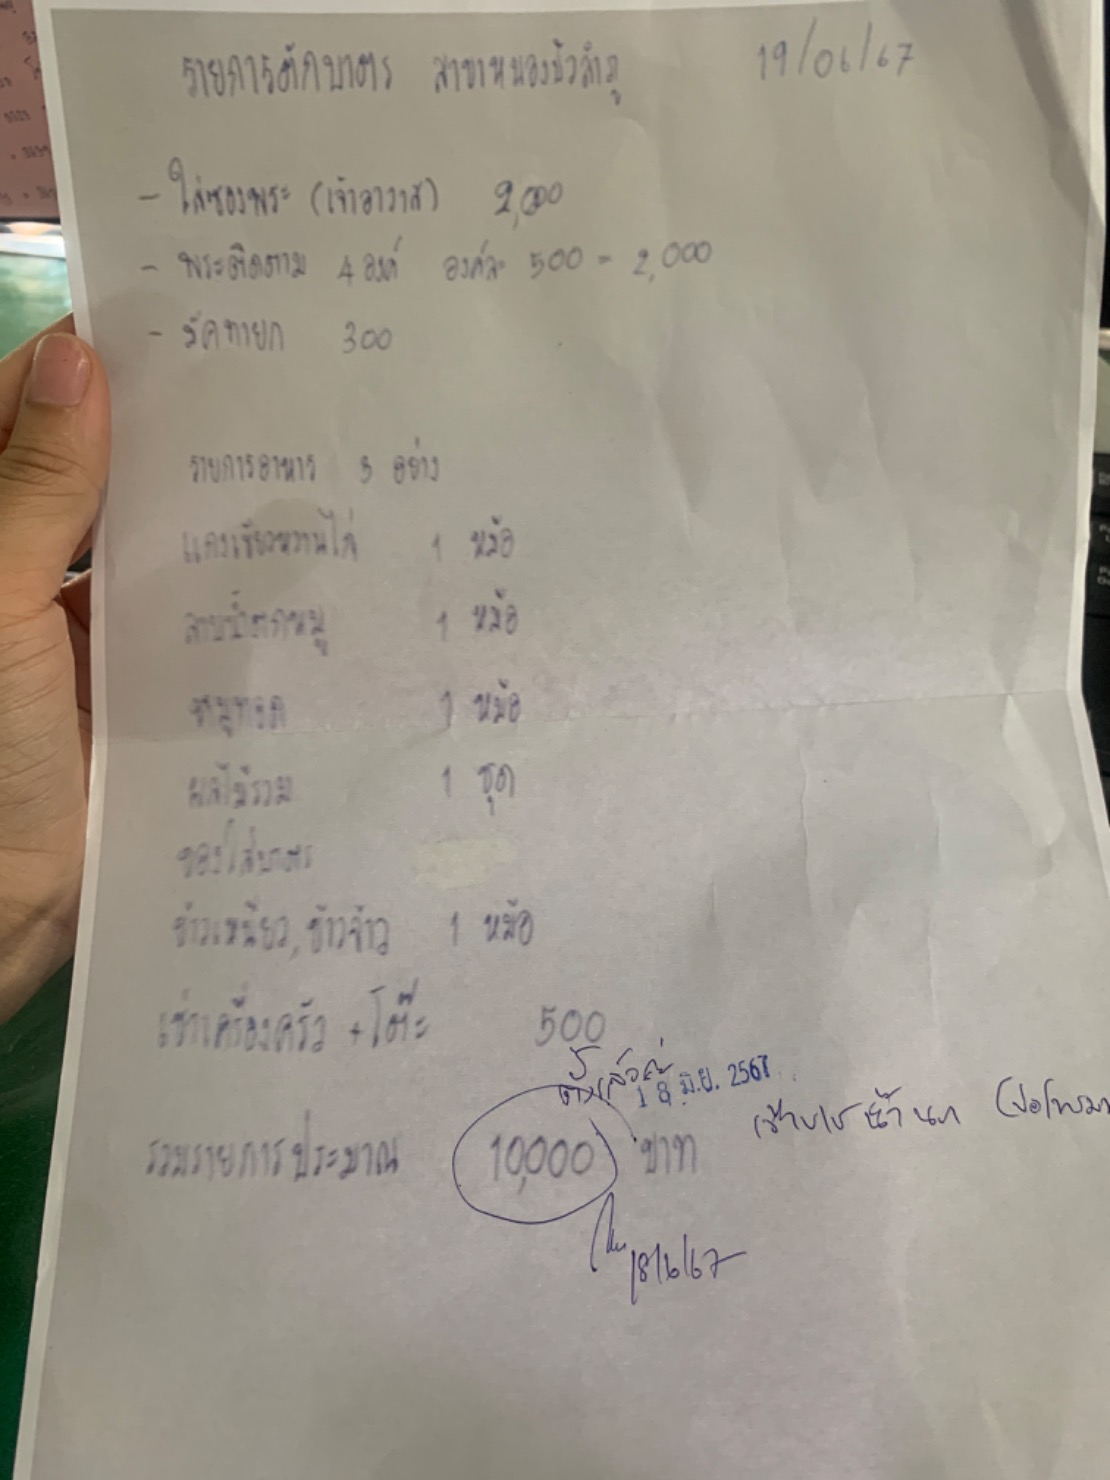 รายการตักบาตร สาขาหนองบัวลำภู 19/06/67
- ใส่ซองพระ (เจ้าอาวาส) 2,000
- พระติดตาม 4 องค์ องค์ละ 500 = 2,000
- มัคทายก 300
รายการอาหาร 3 อย่าง
แกงเขียวหวานไก่ 1 หม้อ
ลาบน้ำตกหมู 1 หม้อ
หมูทอด 1 หม้อ
ผลไม้รวม 1 ชุด
ของใส่บาตร
ข้าวเหนียว, ข้าวจ้าว 1 หม้อ
เช่าเครื่องครัว + โต๊ะ 500
18 มิ.ย. 2567
รวมรายการประมาณ 10,000 บาท
18/6/67